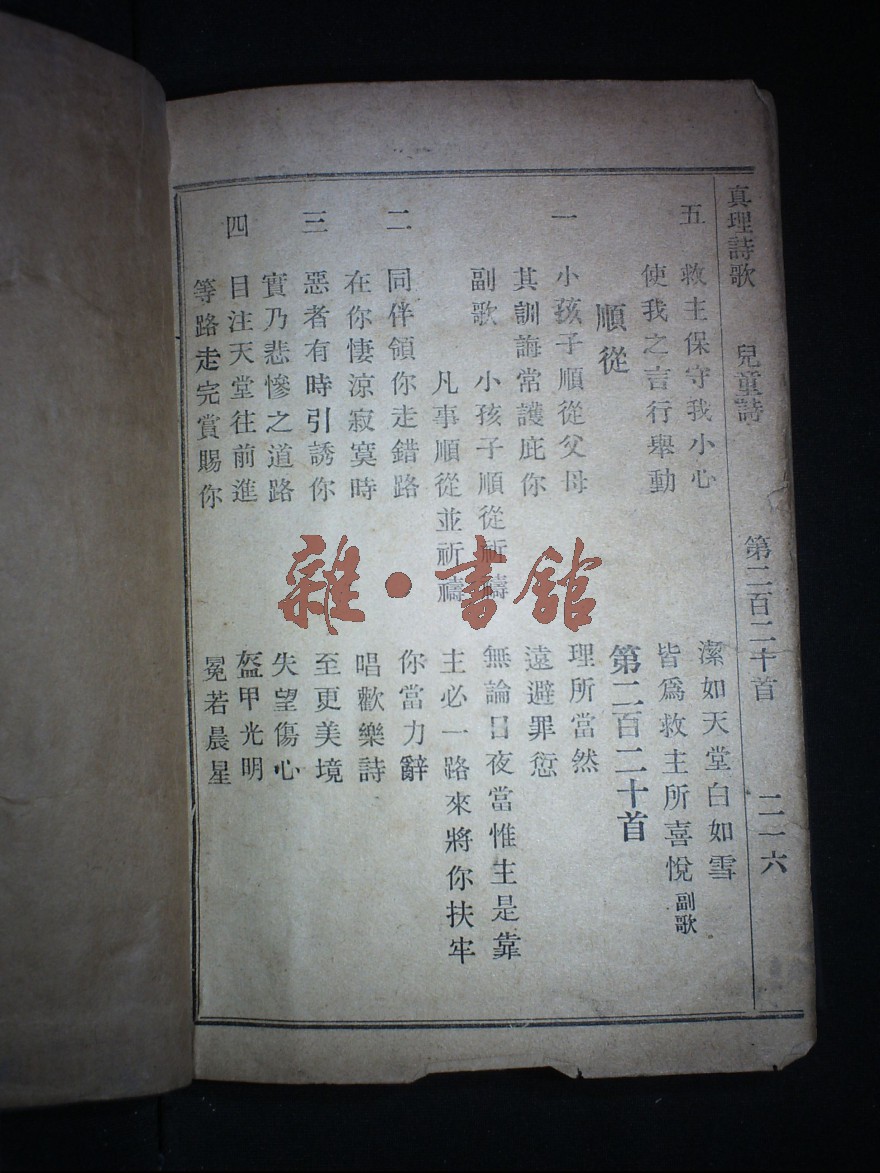 真理詩歌 兒童詩 第二百二十首 二一六
五 救主保守我小心 潔如天堂白如雪
使我之言行舉動 皆爲救主所喜悅 副歌
順從 第二百二十首
一 小孩子順從父母 理所當然
其訓誨常護庇你 遠避罪愆
副歌 小孩子順從祈禱 無論日夜當惟主是靠
凡事順從並祈禱 主必一路來將你扶牢
二 同伴領你走錯路 你當力辭
在你悽涼寂寞時 唱歡樂詩
三 惡者有時引誘你 至更美境
實乃悲慘之道路 失望傷心
四 目注天堂往前進 盔甲光明
等路走完賞賜你 冕若晨星
雜·書館